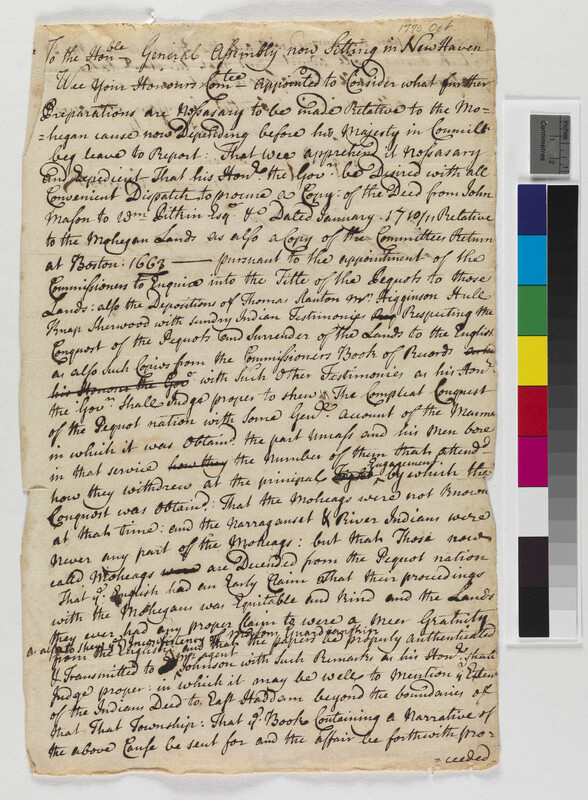 1770 Oct
To the Honble General Assembly now Sitting in New Haven
Wee Your Honours Comtee Appointed to Consider what further
Preparations are Nessasary to be made Relative to the Mo-
-hegan cause now Depending before his Majesty in Councill
beg leave to Report: That wee apprehend it Nessasary
and Expedient That his Honr the Govr be Desired with all
Convenient Dispatch to procure a Copy: of the Deed from John
Mason to Wm Pitkin Esqr & Dated January: 1710/11 Relative
to the Mohegan Lands as also a Copy of the Committees Return
at Boston: 1663 — pursuant to the appointment of the
Commissioners to Enquire into the Title of the Pequots to those
Lands: also the Depositions of Thomas Stanton Mr Higginson Hull
Knap Sherwood with sundry Indian Testimonie Respecting the
Conquest of the Pequots and Surrender of the Lands to the English
as also such Copies from the Commissioners Book of Records
his Honour the Govr with Such Other Testimonies as his Honr
the Govr Shall Judge proper to shew The Compleat Conquest
of the Pequot nation with some Genll Account of the Manner
in which it was Obtaind. the part Umass and his Men bore
in that service how they the Number of them that attend-
how they withdrew at the principal Fight Engagement by which the
Conquest was Obtaind: That the Moheags were not Known
at that time: and the Narraganset & River Indians were
Never any part of the Moheags: but that Those now
called Moheags were are Decended from the Pequot nation
That ye English had an Early Claim That their proceedings
with the Mohegans was Equitable and Kind and the Lands
they ever had any proper Claim to were a Meer Gratuity
as also to shew ye Masons Guardianship
from the English and that the papers be properly authenticated
& Transmitted to agent Johnson with Such Remarks as his Honr Shall
Judge proper: in which it may be well to Mention ye Extent
of the Indians Deed to East Haddam beyond the boundaries of
that That Township: That ye Book Containing a Narrative of
the above Cause be sent for and the affair be forthwith pro-
-ceeded
Centimetres
Inches